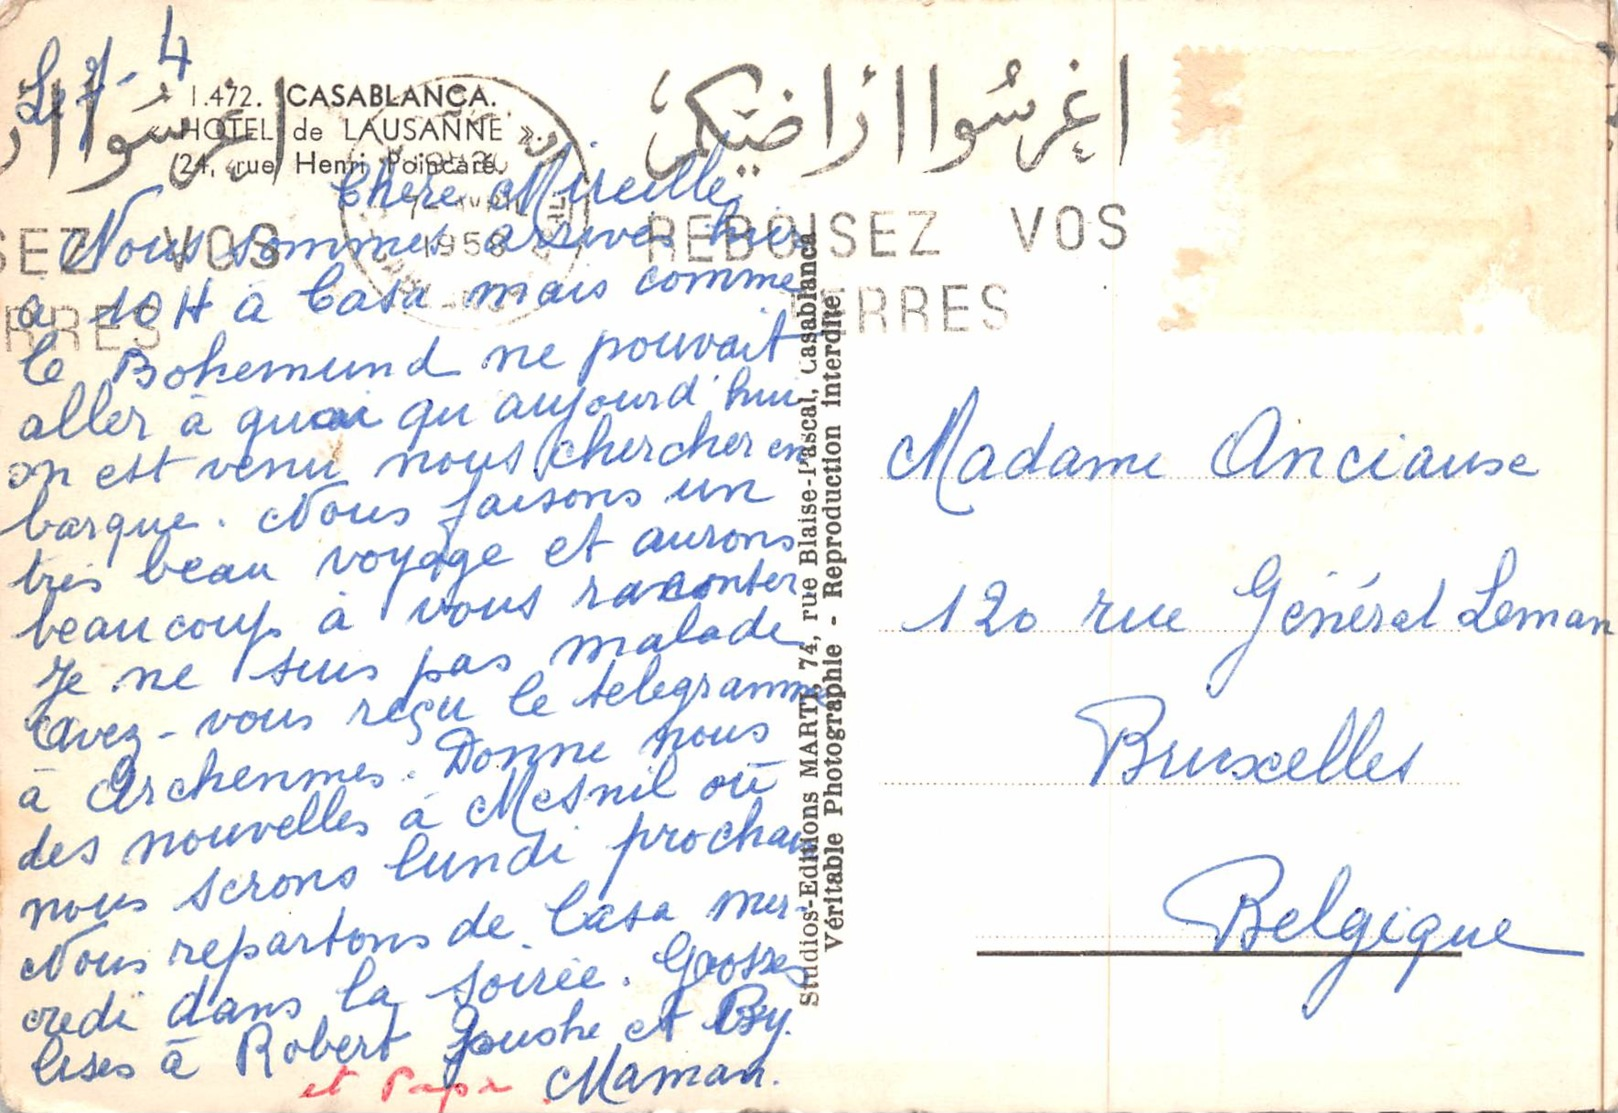 Le 7-4
1.472. CASABLANCA.
« HOTEL de LAUSANNE ».
24, rue Henri Poincaré.
Chère Mireille
Nous sommes arrivés hier
à 10H à Casa mais comme
le Bohemund ne pouvait
aller à quai qu'aujourd'hui
on est venu nous chercher en
barque. Nous faisons un
très beau voyage et aurons
beaucoup à vous raconter
Je ne suis pas malade
avez-vous reçu le telegramme
à Archennes. Donne nous
des nouvelles à Mesnil où
nous serons lundi prochain
Nous repartons de Casa mer-
credi dans la soirée. Grosses
bises à Robert et By.
Maman.
et Papa
اغرسوا أراضيكم
REBOISEZ VOS
TERRES
1958
Studios-Editions MARTI, 74, rue Blaise-Pascal, Casablanca
Véritable Photographie - Reproduction interdite
Madame Anciaux
120 rue Général Leman
Bruxelles
Belgique